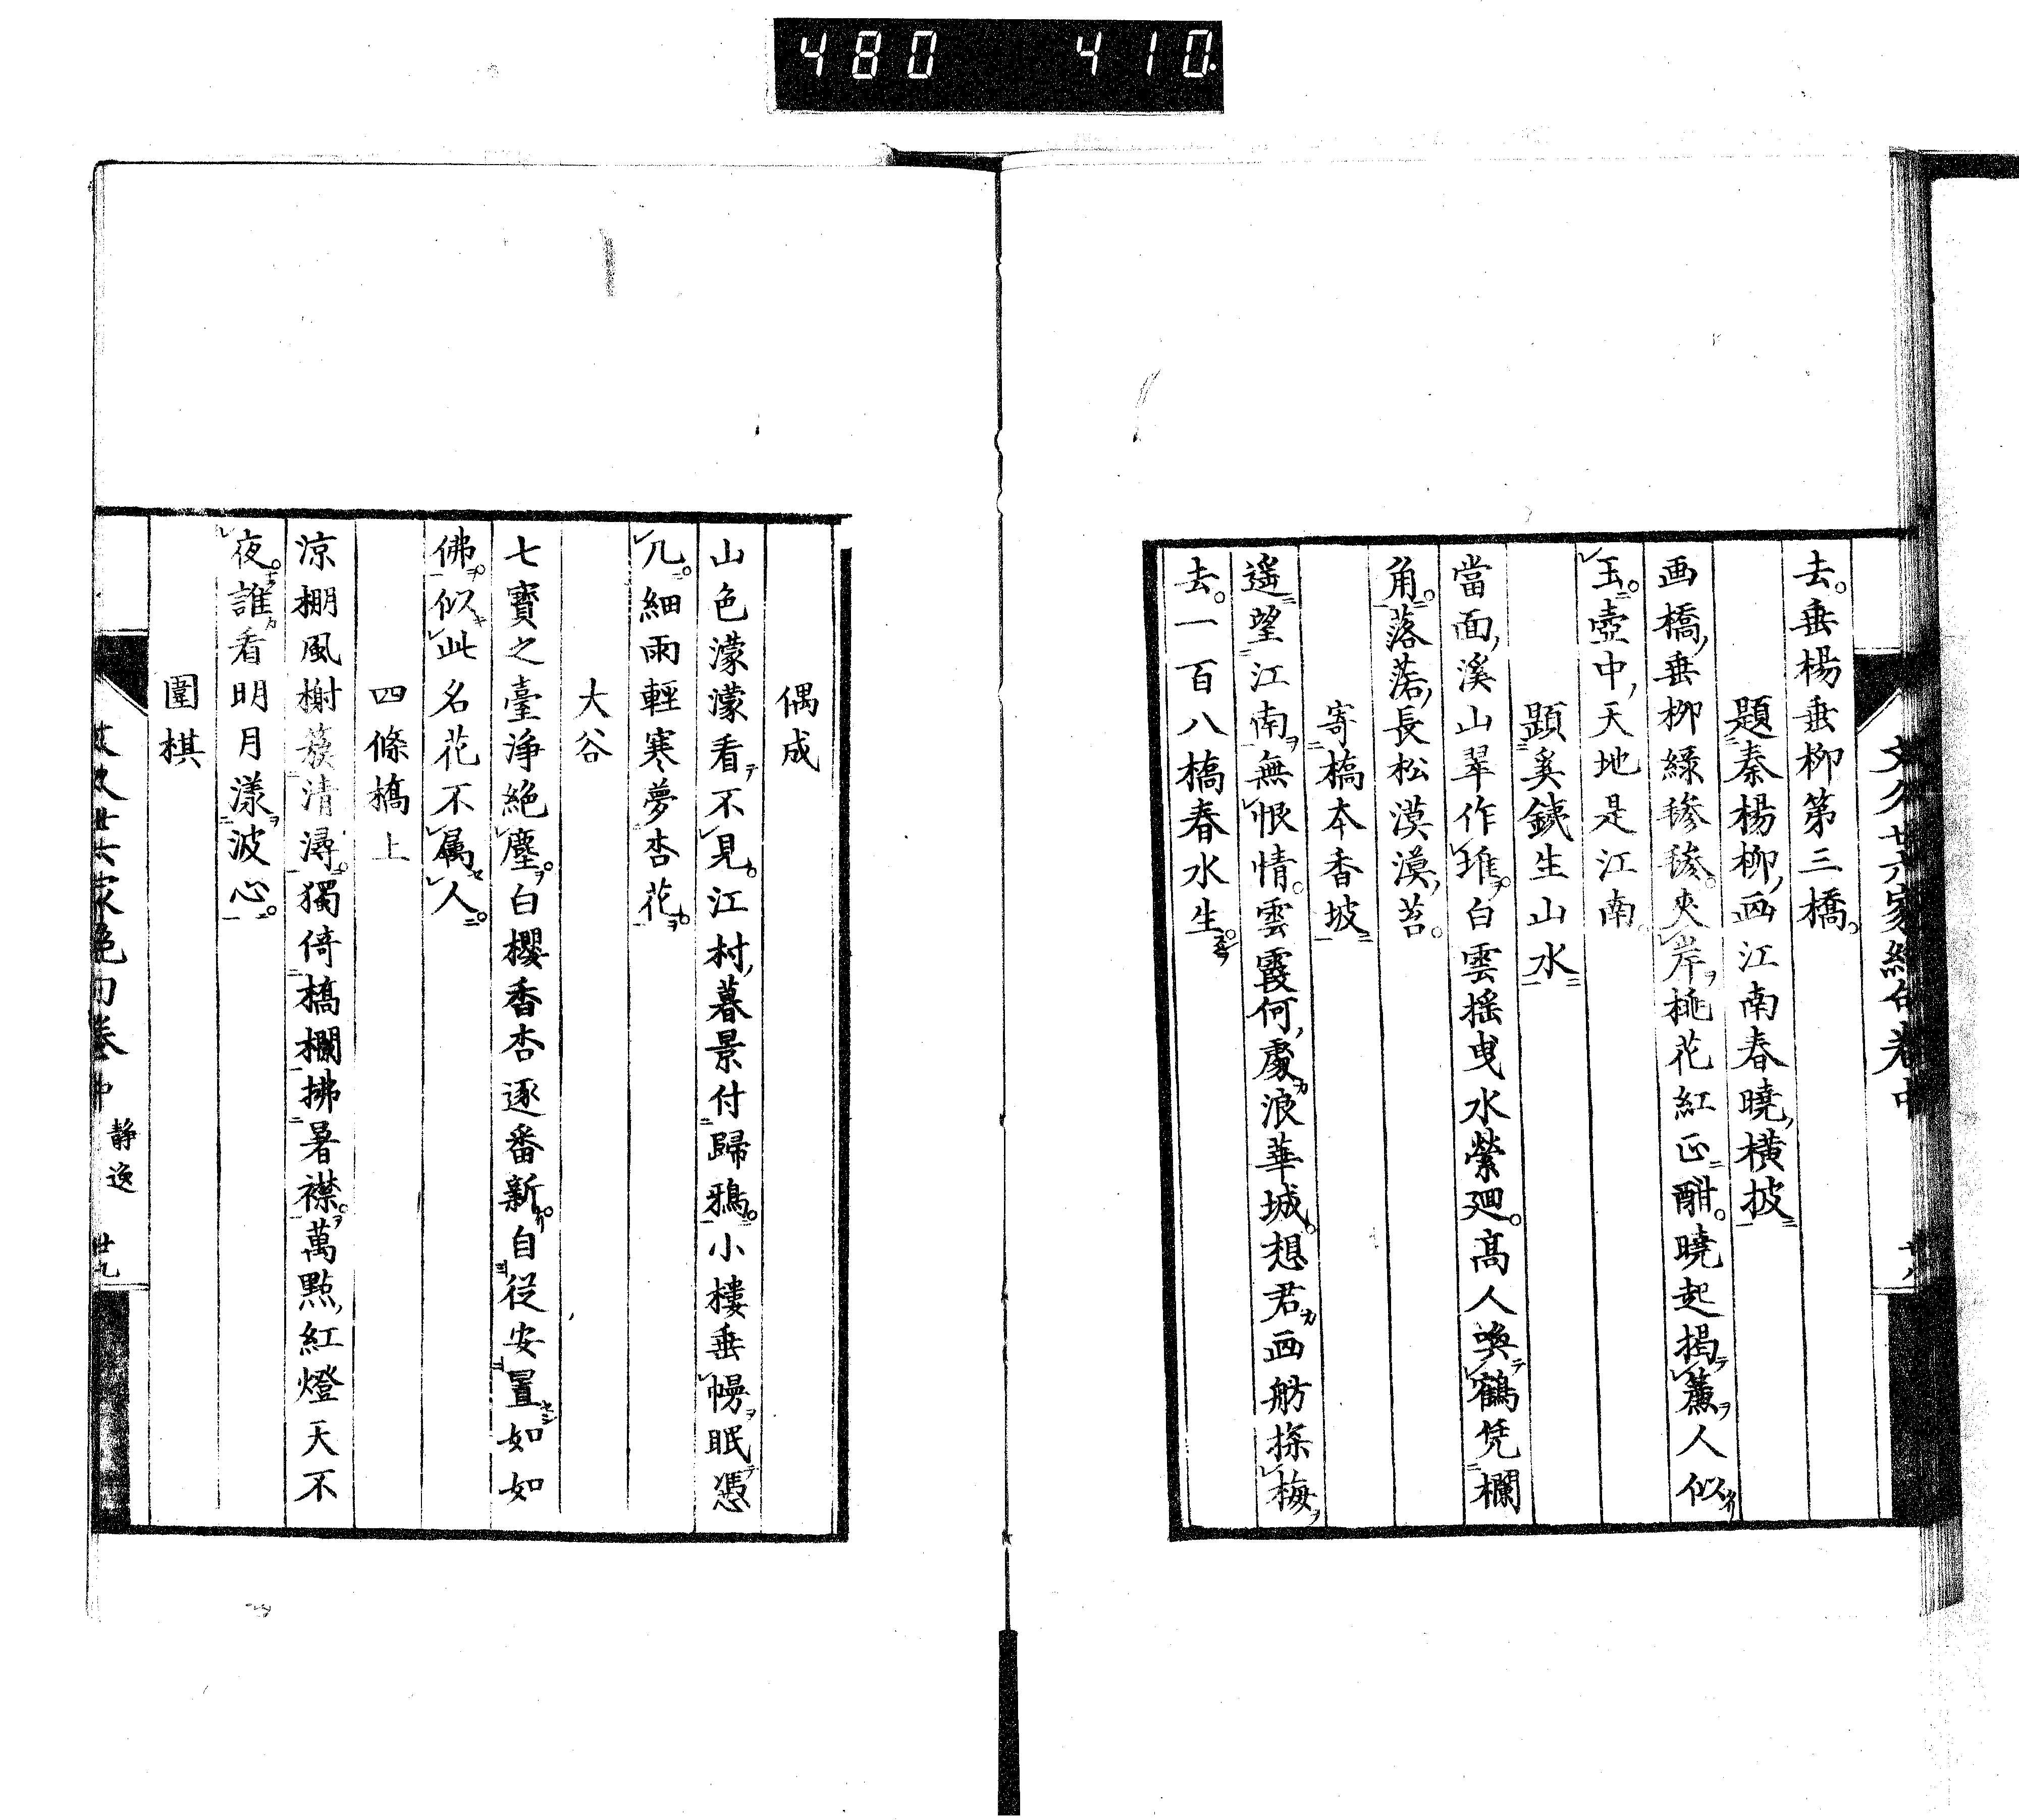 480 410.
文久廿六家絶句卷中
去。垂楊垂柳第三橋。
題秦楊柳画江南春曉橫披
画橋垂柳緑毿毿。夾岸桃花紅正酣。曉起揭簾人似
玉。壺中天地是江南。
題奚鐵生山水
當面溪山翠作堆。白雲搖曳水縈廻。高人喚鶴凭欄
角。落落長松漠漠苔。
寄橋本香坡
遥望江南無恨情。雲霞何處浪華城。想君画舫探梅
去。一百八橋春水生。
偶成
山色濛濛看不見。江村暮景付歸鴉。小樓垂幔眠憑
几。細雨輕寒夢杏花。
大谷
七寶之臺淨絶塵。白櫻香杏逐番新。自從安置如如
佛。似此名花不屬人。
四條橋上
涼棚風榭簇清潯。獨倚橋欄拂暑襟。萬點紅燈天不
夜。誰看明月漾波心。
圍棋
文久廿六家絶句卷中 靜逸 廿九